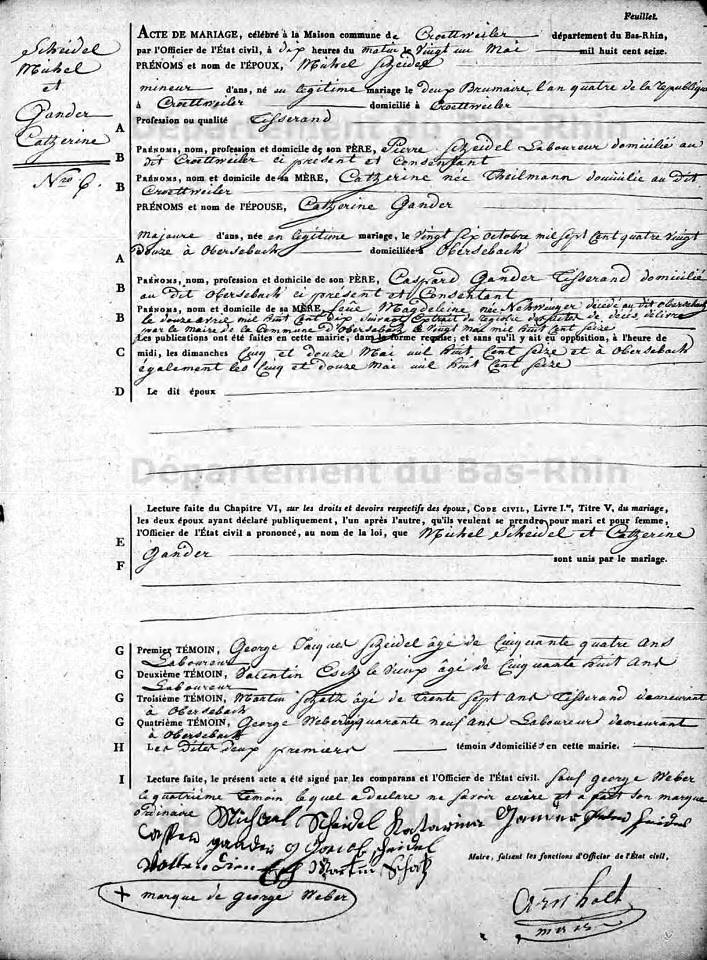 Feuillet.
Scheidel
Michel
et
Gander
Catherine
Nro 6.
ACTE DE MARIAGE, célébré à la Maison commune de Croettweiler département du Bas-Rhin,
par l'Officier de l'État civil, à dix heures du matin le Vingt un Mai mil huit cent seize.
PRÉNOMS et nom de l'ÉPOUX, Michel Scheidel
mineur d'ans, né en legitime mariage le deux Brumaire l'an quatre de la republique
à Croettweiler domicilié à Croettweiler
Profession ou qualité Tisserand
A
PRÉNOMS, nom, profession et domicile de son PÈRE, Pierre Scheidel Laboureur domicilié au
B dit Croettweiler ci present et Consentant
PRÉNOMS, nom et domicile de sa MÈRE, Catherine née Theilmann domicilié au dit
B Croettweiler
PRÉNOMS et nom de l'ÉPOUSE, Catherine Gander
majeure d'ans, née en legitime mariage, le Vingt Six octobre mil Sept Cent quatre Vingt
douze à Obersebach domiciliée à Obersebach
A
B PRÉNOMS, nom, profession et domicile de son PÈRE, Caspard Gander Tisserand domicilié
au dit Obersebach ci présent et Consentant
B PRÉNOMS, nom et domicile de sa MÈRE, feüe Magdeleine née décédé au dit Obersebach
le douze avril mil huit Cent dix suivant Extrait du registre des actes de decès délivré
par le Maire de la Commune d'Obersebach le Vingt Mai mil huit Cent Seize
Les publications ont été faites en cette mairie, dans la forme requise; et sans qu'il y ait eu opposition, à l'heure de
C midi, les dimanches Cinq et douze Mai mil huit Cent Seize et à Obersebach
également les Cinq et douze Mai mil huit Cent Seize
D Le dit époux
Département du Bas-Rhin
Lecture faite du Chapitre VI, sur les droits et devoirs respectifs des époux, CODE CIVIL, Livre I.er, Titre V, du mariage,
les deux époux ayant déclaré publiquement, l'un après l'autre, qu'ils veulent se prendre pour mari et pour femme,
l'Officier de l'État civil a prononcé, au nom de la loi, que Michel Scheidel et Catherine
E Gander sont unis par le mariage.
F
G Premier TÉMOIN, George Jacques Scheidel âgé de Cinquante quatre ans
Laboureur
G Deuxième TÉMOIN, Valentin le Vieux âgé de Cinquante huit ans
Laboureur
G Troisième TÉMOIN, Martin Schatz âgé de trente Sept ans Tisserand demeurant
à Obersebach
G Quatrième TÉMOIN, George Weber quarante neuf ans Laboureur demeurant
à Obersebach
H Les dites deux premiers témoins domiciliés en cette mairie.
I Lecture faite, le présent acte a été signé par les comparans et l'Officier de l'État civil. Sauf george Weber
le quatrième Temoin lequel a declaré ne Savoir ecrire et a fait son marque
ordinaire Michael Scheidel Katarina
Casper gander
Martin Schatz
Maire, faisant les fonctions d'Officier de l'État civil,
+ marque de george Weber
Arnholt
maire